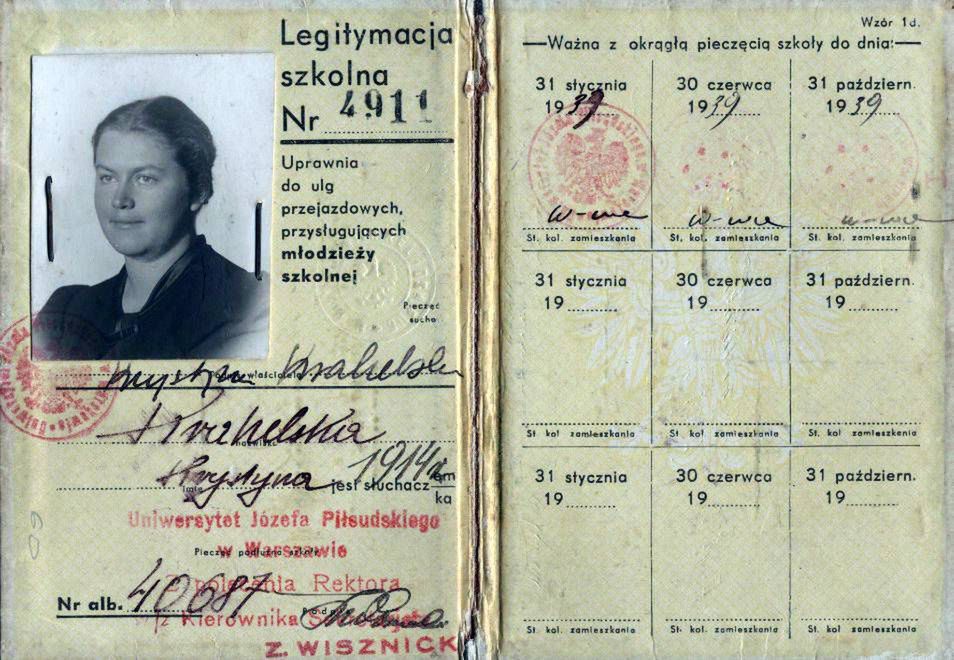 Legitymacja
szkolna
Nr 4911
Uprawnia
do ulg
przejazdowych,
przysługujących
młodzieży
szkolnej
Pieczęć
sucha
Krystyna Krahelska
Krahelska
nazwisko
Krystyna 1914 r.
imię jest słuchacz em
ka
Uniwersytet Józefa Piłsudskiego
w Warszawie
Pieczęć podłużna szkoły
Z polecenia Rektora
Nr alb. 40687
w/z Kierownika
Z. WISZNICK
60
Wzór 1d.
Ważna z okrągłą pieczęcią szkoły do dnia:
31 stycznia 30 czerwca 31 październ.
1939 1939 1939
w-wa w-wa w-wa
St. kol. zamieszkania St. kol. zamieszkania St. kol. zamieszkania
31 stycznia 30 czerwca 31 październ.
19 19 19
St. kol. zamieszkania St. kol. zamieszkania St. kol. zamieszkania
31 stycznia 30 czerwca 31 październ.
19 19 19
St. kol. zamieszkania St. kol. zamieszkania St. kol. zamieszkania